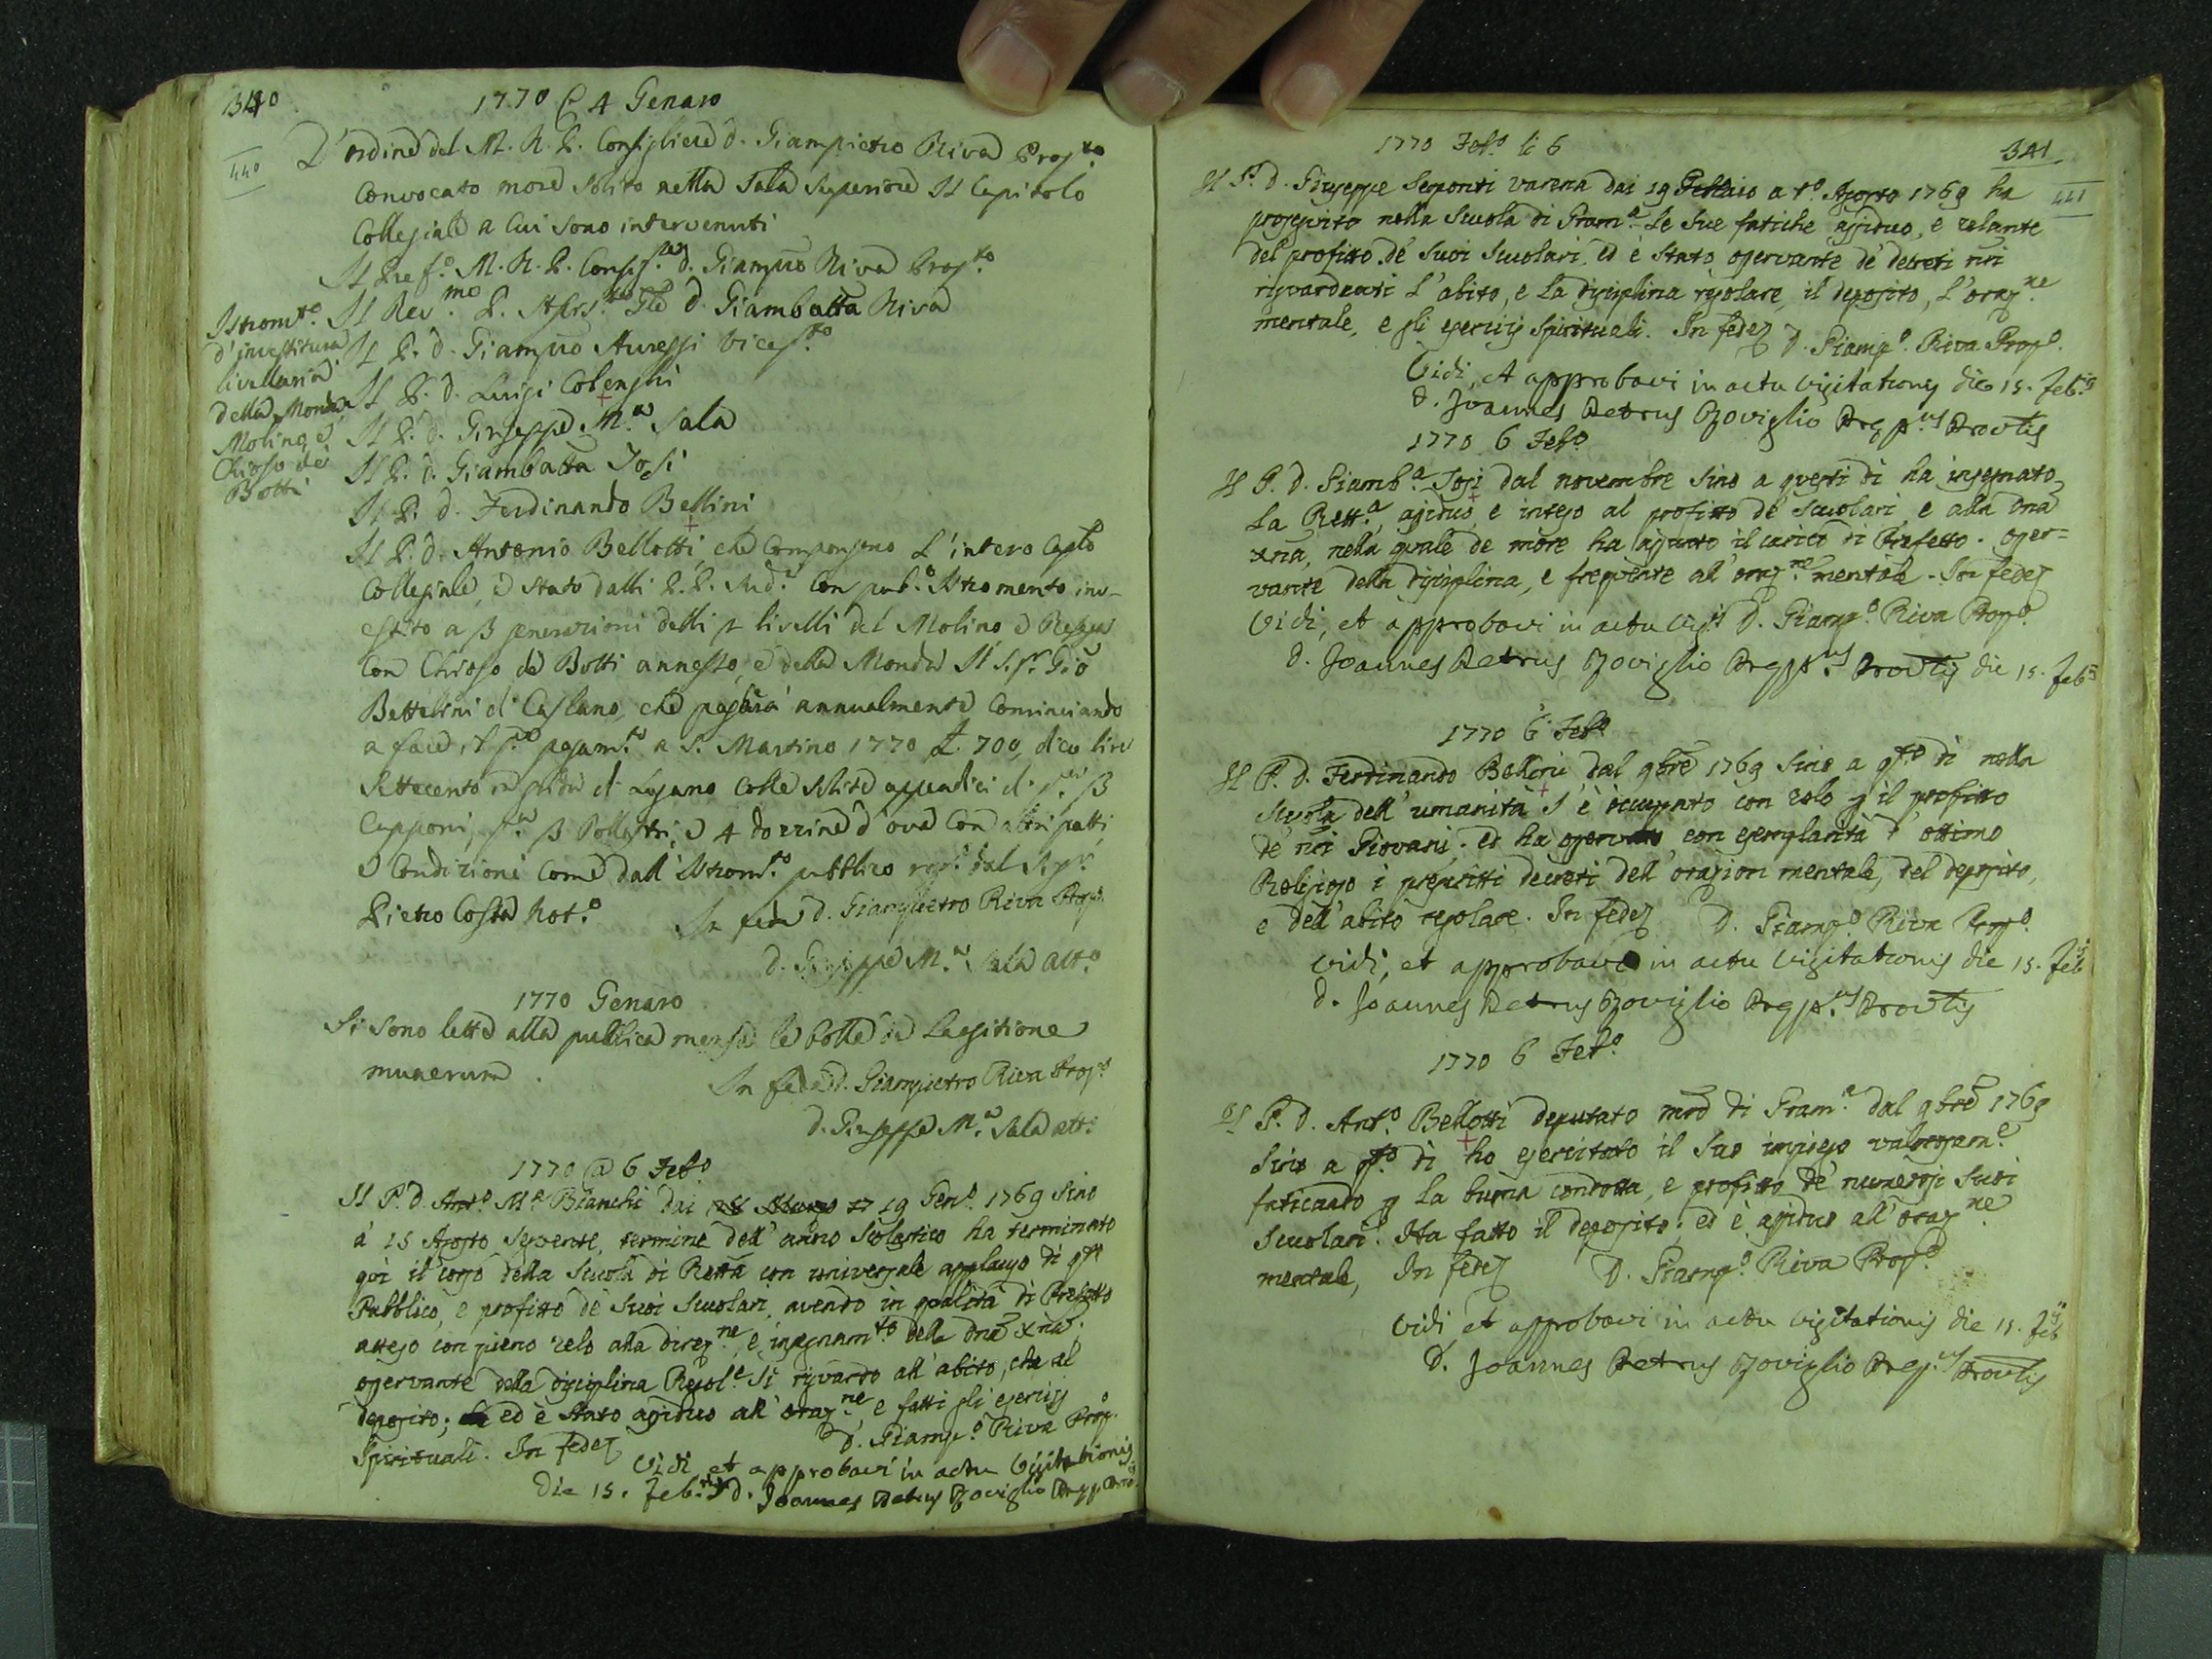 340
440
1770 @ 4 Genaro
D'ordine del M. R. P. Consigliere d. Giampietro Riva Prop.to
Convocato more solito nella Sala Superiore Il Capitolo
Collegiale a cui sono intervenuti
Il Pref.o M. R. P. Consig.re d. Giampro Riva Prop.to
Il Rev.mo P. d. Giambatta Riva
Il P. d. Giampro Auressi Vicep.to
Il P. d. Luigi Cotenghi
Il P. d. Giuseppe M.a Sala
Il P. d. Giambatta Josi
Il P. d. Ferdinando Bellini
Istromto.
d'investitura
livellaria
della Monda
Molino, e
Chioso de
Botti
Il P. d. Antonio Bellotti, che compongono L'intero Caplo
Collegiale, è stato dalli P. P. Sud.i con pub.o Istromento inv-
estito a 3 generazioni delli livelli del Molino, e
con Chioso de Botti annesso, e della Monda Il S.r Gio
Bettelini di Caslano, che pagherà annualmente cominciando
a fare il p.o pagam.to a S. Martino 1770 L. 700, dico lire
settecento di Lugano colle solite appendici di 3
Capponi, 3 Pollastri, e 4 dozzine d'ova con altri patti,
e condizioni come dall'Istrom.to pubblico rog.o dal Sig.r
Pietro Costa Not.o
In fede d. Giampietro Riva Prop.o
d. Giuseppe M.a Sala att.o
1770 Genaro
Si sono lette alla publica mensa le bolle de Largitione
munerum.
In fede d. Giampietro Riva Prop.o
d. Giuseppe M.a Sala att.
1770 @ 6 Feb.o
Il P. d. Ant.o M.a Bianchi dai 19 Gen.o 1769 sino
a 15 Agosto seguente, termine dell'anno Scolastico ha terminato
quì il corso della Scuola di Retta con universale applauso di qsto
Pubblico, e profitto de suoi Scuolari, avendo in qualità di Prefetto
atteso con pieno zelo alla direz.ne, e insegnam.to della dna xna;
osservante della disciplina Regol.e sì riguardo all'abito, che al
deposito; ed è stato assiduo all'oraz.ne, e fatti gli esercizj
Spirituali. In fede
d. Giamp.o Riva Prop.o
Vidi et approbavi in actu Visitationis
die 15. Feb.rij d. Joannes Petrus Roviglio Prep.
1770 Feb.o li 6
341
441
Il P. d. Giuseppe Serponti Varena dai 19 a t.o Agosto 1769 ha
proseguito nella Scuola di Gram.a le sue fatiche assiduo, e zelante
del profitto de suoi Scuolari, ed è stato osservante de decreti nri
riguardanti l'abito, e la disciplina regolare, il deposito, l'oraz.ne
mentale, e gli esercizj spirituali. In fede
D. Giamp.o Riva Prop.o
Vidi, et approbavi in actu visitationis die 15. Feb.rij
d. Joannes Petrus Roviglio Prep.us Provlis
1770 6 Feb.o
Il P. D. Giamb.a Josi dal novembre sino a questi dì ha insegnato
la Rett.a, assiduo, e inteso al profitto de Scuolari, e alla dna
xna, nella quale de more ha assunto il carico di Prefetto. Osser-
vante della disciplina, e frequente all'oraz.ne mentale. In fede
Vidi, et approbavi in actu visit. D. Giamp.o Riva Prop.o
d. Joannes Petrus Roviglio Prep.us Provlis die 15. Feb.ij
1770 6 Feb.o
Il P. D. Ferdinando Bellini dal 9bre 1769 sino a qsto dì nella
scuola dell'umanità s'è occupato con zelo p il profitto
de nri Giovani; ed ha con esemplarità d'ottimo
Religioso i prescritti decreti dell'orazion mentale, del deposito,
e dell'abito regolare. In fede D. Giamp.o Riva Prop.o
Vidi, et approbavi in actu visitationis die 15. Feb.ij
d. Joannes Petrus Roviglio Prep.us Provlis
1770 6 Feb.o
Il P. D. Ant.o Bellotti deputato mro di Gram.a dal 9bre 1769
sino a qsto dì ha esercitato il suo impiego valorosam.e
faticando p la buona condotta, e profitto de numerosi suoi
Scuolari. Ha fatto il deposito; ed è assiduo all'oraz.ne
mentale, In fede D. Giamp.o Riva Prop.o
Vidi et approbavi in actu visitationis die 15. Feb.ij
D. Joannes Petrus Roviglio Prep.us Provlis